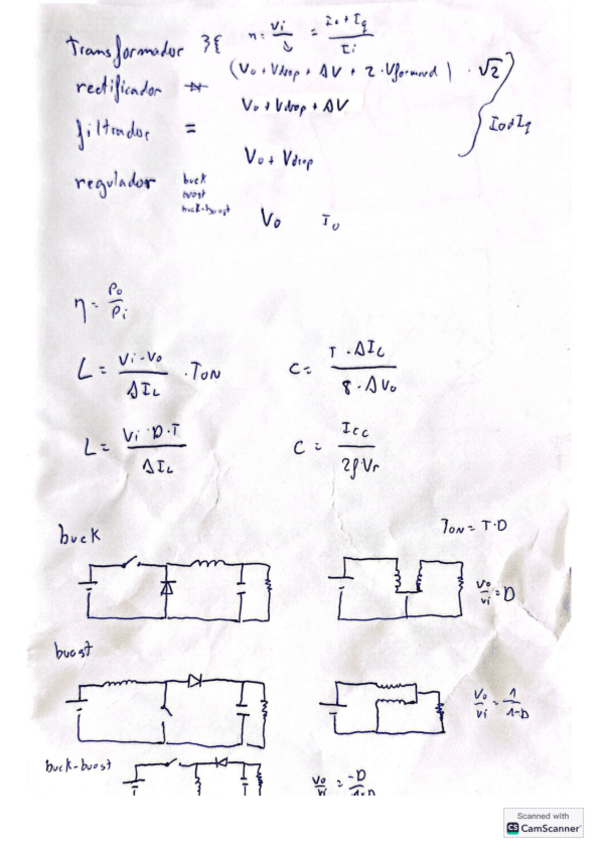 transformador n = Vi/ = Io+Iq/Ii
rectificador (Vo + Vdrop + ΔV + 2·Vforward) · √2
Vo + Vdrop + ΔV
filtrador =
Vo + Vdrop
regulador buck
boost
buck-boost
Vo Io
η = Po/Pi
L = Vi-Vo/ΔIL · TON C = T·ΔIL/8·ΔVo
L = Vi·D·T/ΔIL C = Icc/2fVr
buck TON = T·D
Vo/Vi = D
boost
Vo/Vi = 1/1-D
buck-boost Vo/Vi = -D/1-D
Scanned with
CS CamScanner